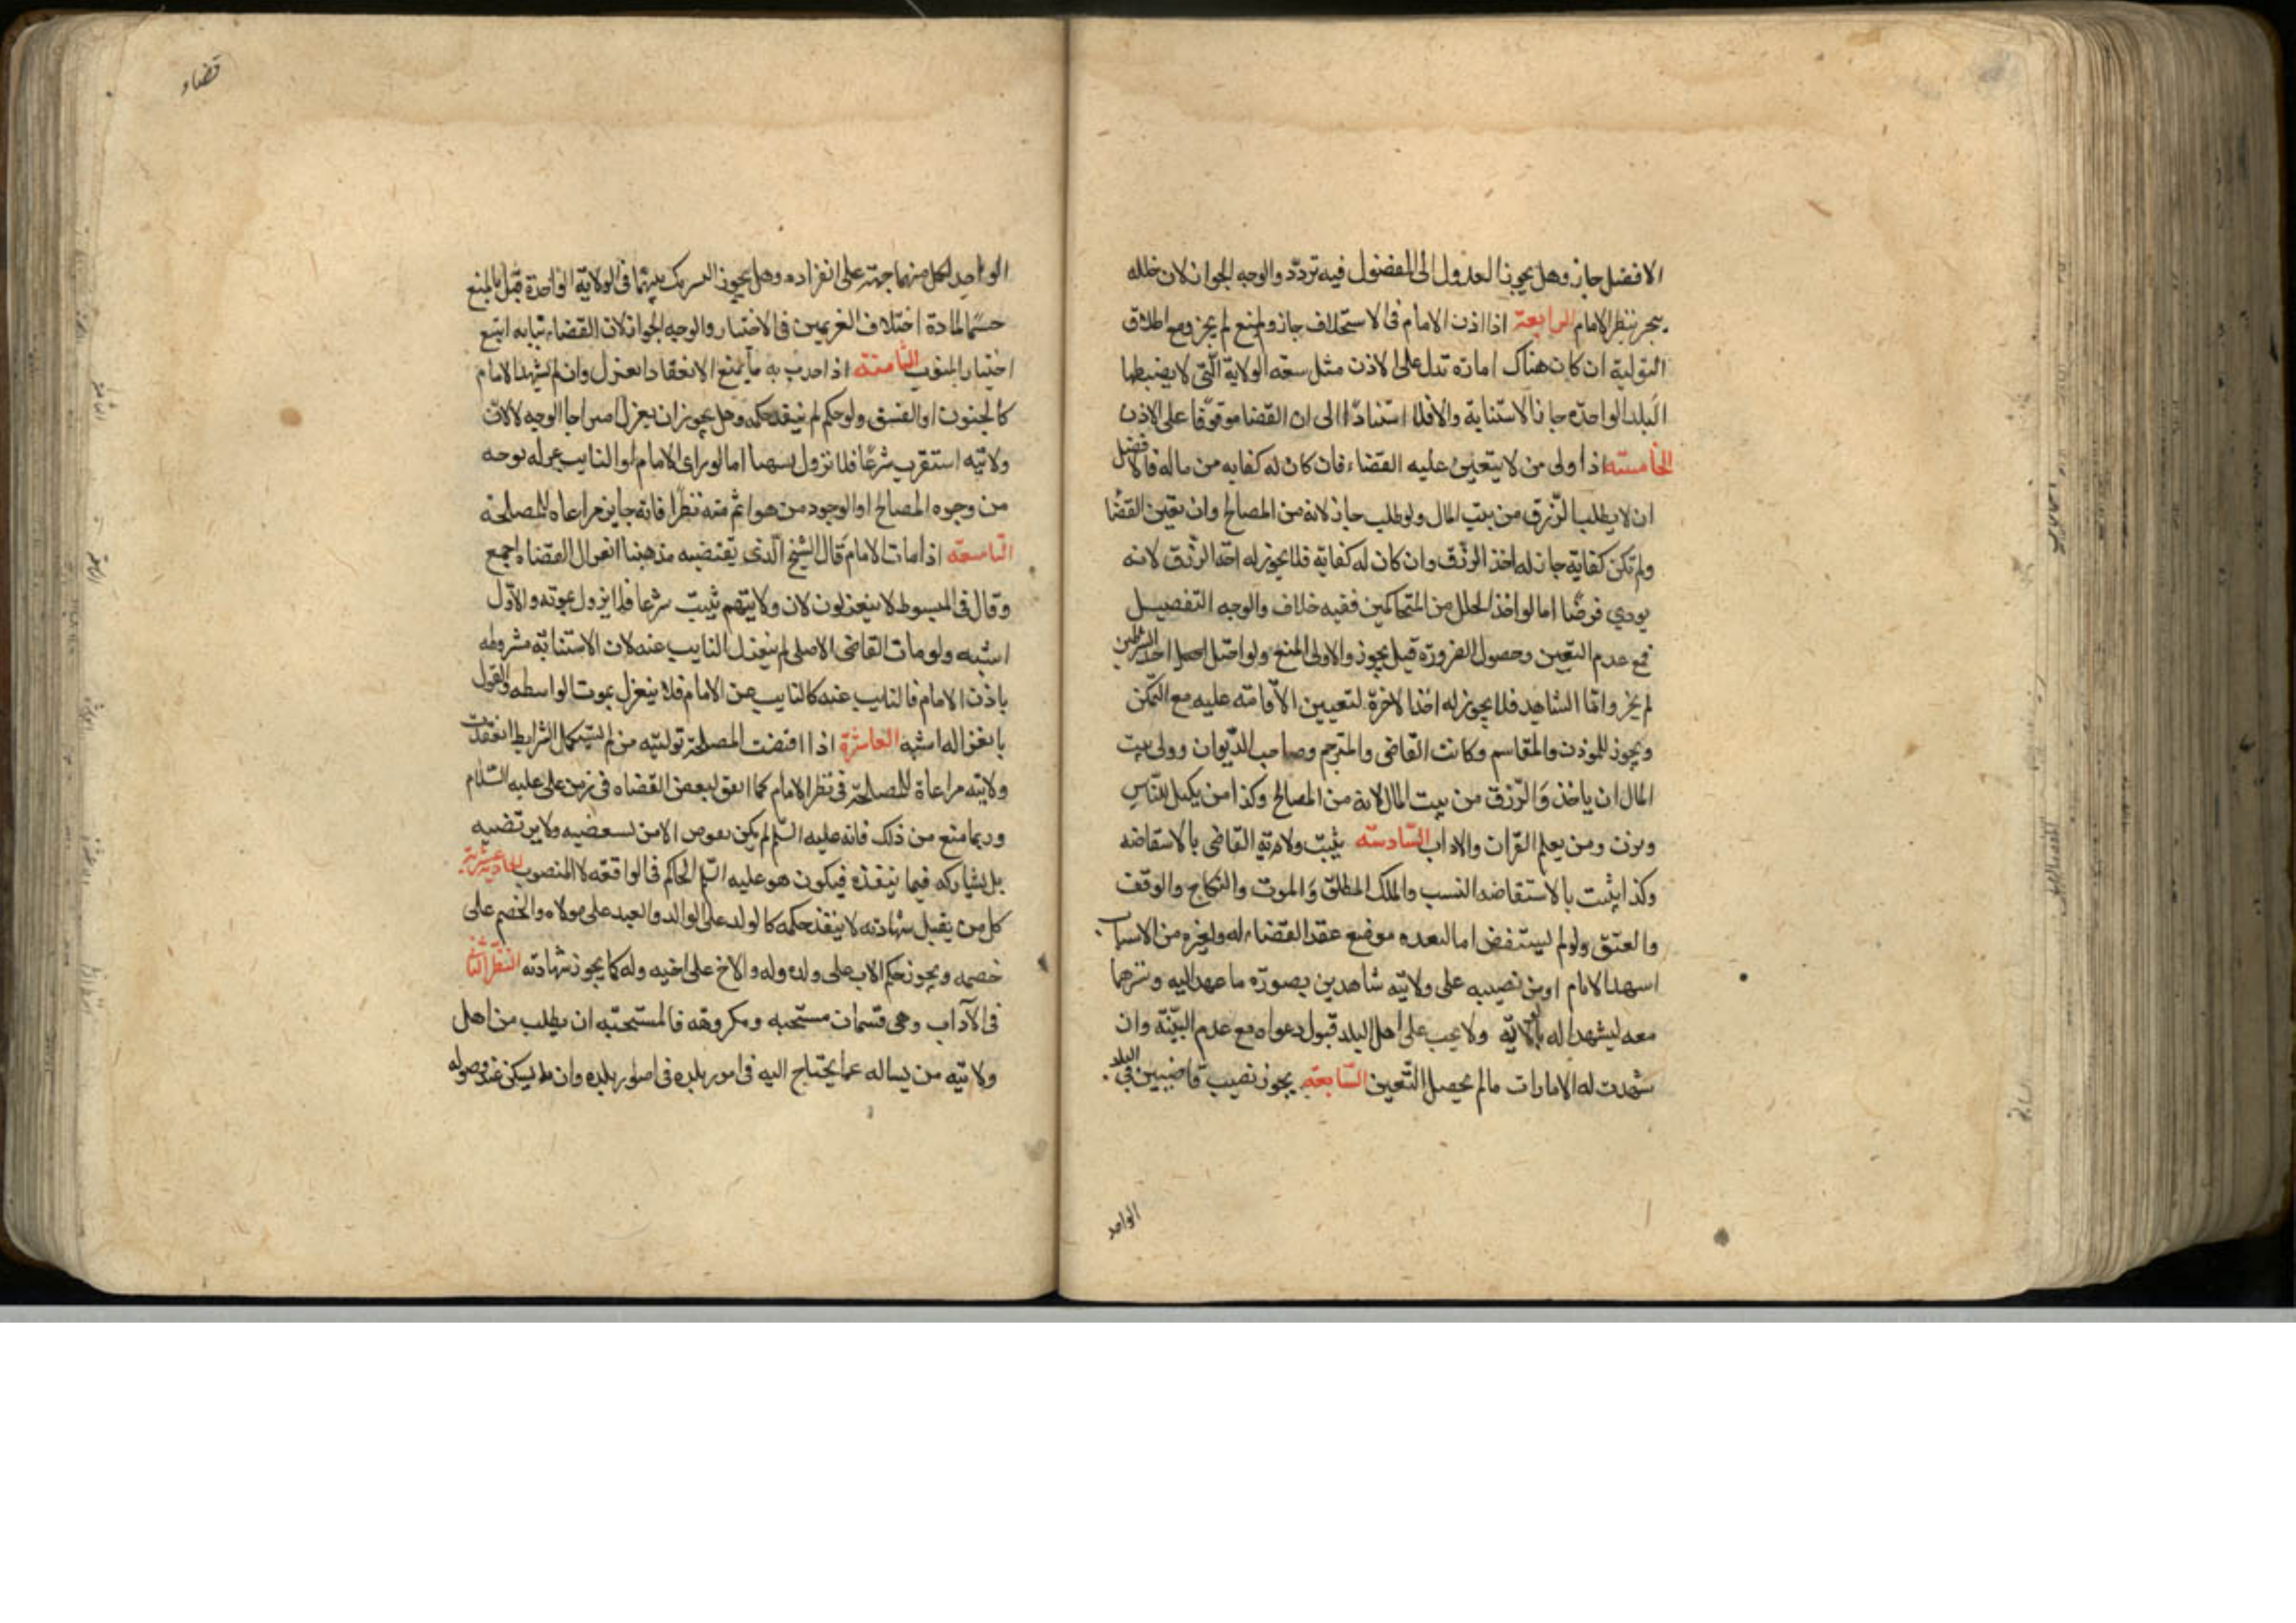 الافضل جاز وهل يجوز العدول الى المفضول فيه تردد والوجه الجواز لان خلله
ينجبر بنظر الامام الرابعة اذا اذن الامام فى الاستخلاف جاز ولو منع لم يجز ومع اطلاق
التولية ان كان هناك امارة تدل على الاذن مثل سعة الولاية التى لا يضبطها
اليد الواحدة جاز الاستنابة والا فلا استنادًا الى ان القضا موقوفا على الاذن
الخامسة اذا ولى من لا يتعين عليه القضاء فان كان له كفاية من ماله فالافضل
ان لا يطلب الرزق من بيت المال ولو طلب جاز لانه من المصالح وان تعين القضا
ولم تكن كفاية جاز له اخذ الرزق وان كان له كفاية فلا يجوز له اخذ الرزق لانه
يودي فرضًا اما لو اخذ الجعل من المتحاكمين ففيه خلاف والوجه التفصيل
فمع عدم التعين وحصول الضرورة قيل يجوز والاولى المنع ولو اختل احد الشرطين
لم يجز واما الشاهد فلا يجوز له اخذ الاجرة لتعيين الاقامته عليه مع التمكن
ويجوز للموذن والمقاسم وكاتب القاضى والمترجم وصاحب الديوان ووالى بيت
المال ان ياخذوا الرزق من بيت المال لانه من المصالح وكذا من يكيل للناس
ويزن ومن يعلم القران والاداب السادسة يثبت ولاية القاضى بالاستفاضه
وكذا يثبت بالاستفاضه النسب والملك المطلق والموت والنكاح والوقف
والعتق ولو لم يستفض اما لبعده موضع عقد القضاء له ولغيره من الاسباب
اشهد الامام او من نصبه على ولايته شاهدين بصورة ما عهد اليه وسيرهما
معه ليشهدا له بالولاية ولا يجب على اهل البلد قبول دعواه مع عدم البينة وان
شهدت له الامارات مالم يحصل التعين السابعة يجوز نصيب قاضيين فى البلد
الواحد
قضاء
الواحد لكل منهما جهة على انفراده وهل يجوز التسريك بينهما فى الولاية الواحدة قيل بالمنع
حسمًا لمادة اختلاف الغريمين فى الاختيار والوجه الجواز لان القضاء نيابه اتبع
اختيار المنوب الثامنة اذا حدث به ما يمنع الانعقاد انعزل وان لم يشهد الامام
كالجنون او الفسق ولو حكم لم ينفذ حكمه وهل يجوز ان يعزل اقتراحا الوجه لا لان
ولايته استقرت شرعًا فلا تزول تشهيا اما لو راى الامام او النايب عزله لوجه
من وجوه المصالح او لوجود من هو اتم منه نظرا فانه جايز مراعاه للمصلحة
التاسعة اذا مات الامام قال الشيخ الذى يقتضيه مذهبنا انعزال القضاه اجمع
وقال فى المبسوط لا ينعزلون لان ولايتهم ثبتت شرعا فلا يزول بموته والاول
اشبه ولو مات القاضى الاصلى لم ينعزل النايب عنه لان الاستنابة مشروطه
باذن الامام فالنايب عنه كالنايب عن الامام فلا ينعزل بموت الواسطه والقول
بانعزاله اشبه العاشرة اذا اقتضت المصلحة توليته من لم يستكمل الشرايط انعقدت
ولايته مراعاة للمصلحة فى نظر الامام كما اتفق لبعض القضاه فى زمن على عليه السلام
وربما منع من ذلك فانه عليه السلم لم يكن يفوض الا من يستقضيه ولا يرتضيه
بل يشاركه فيما ينفذه فيكون هو عليه السلم الحاكم فى الواقعه لا المنصوب الحادية عشرة
كل من يقبل شهادته لا ينفذ حكمه كالولد على الوالد والعبد على مولاه والخصم على
خصمه ويجوز حكم الاب على ولده وله والاخ على اخيه وله كما يجوز شهادته النظر الثانى
فى الآداب وهى قسمان مستحبه ومكروهه فالمستحبه ان يطلب من اهل
ولايته من يساله عما يحتاج اليه فى امور بلده وان يسكن عند وصوله